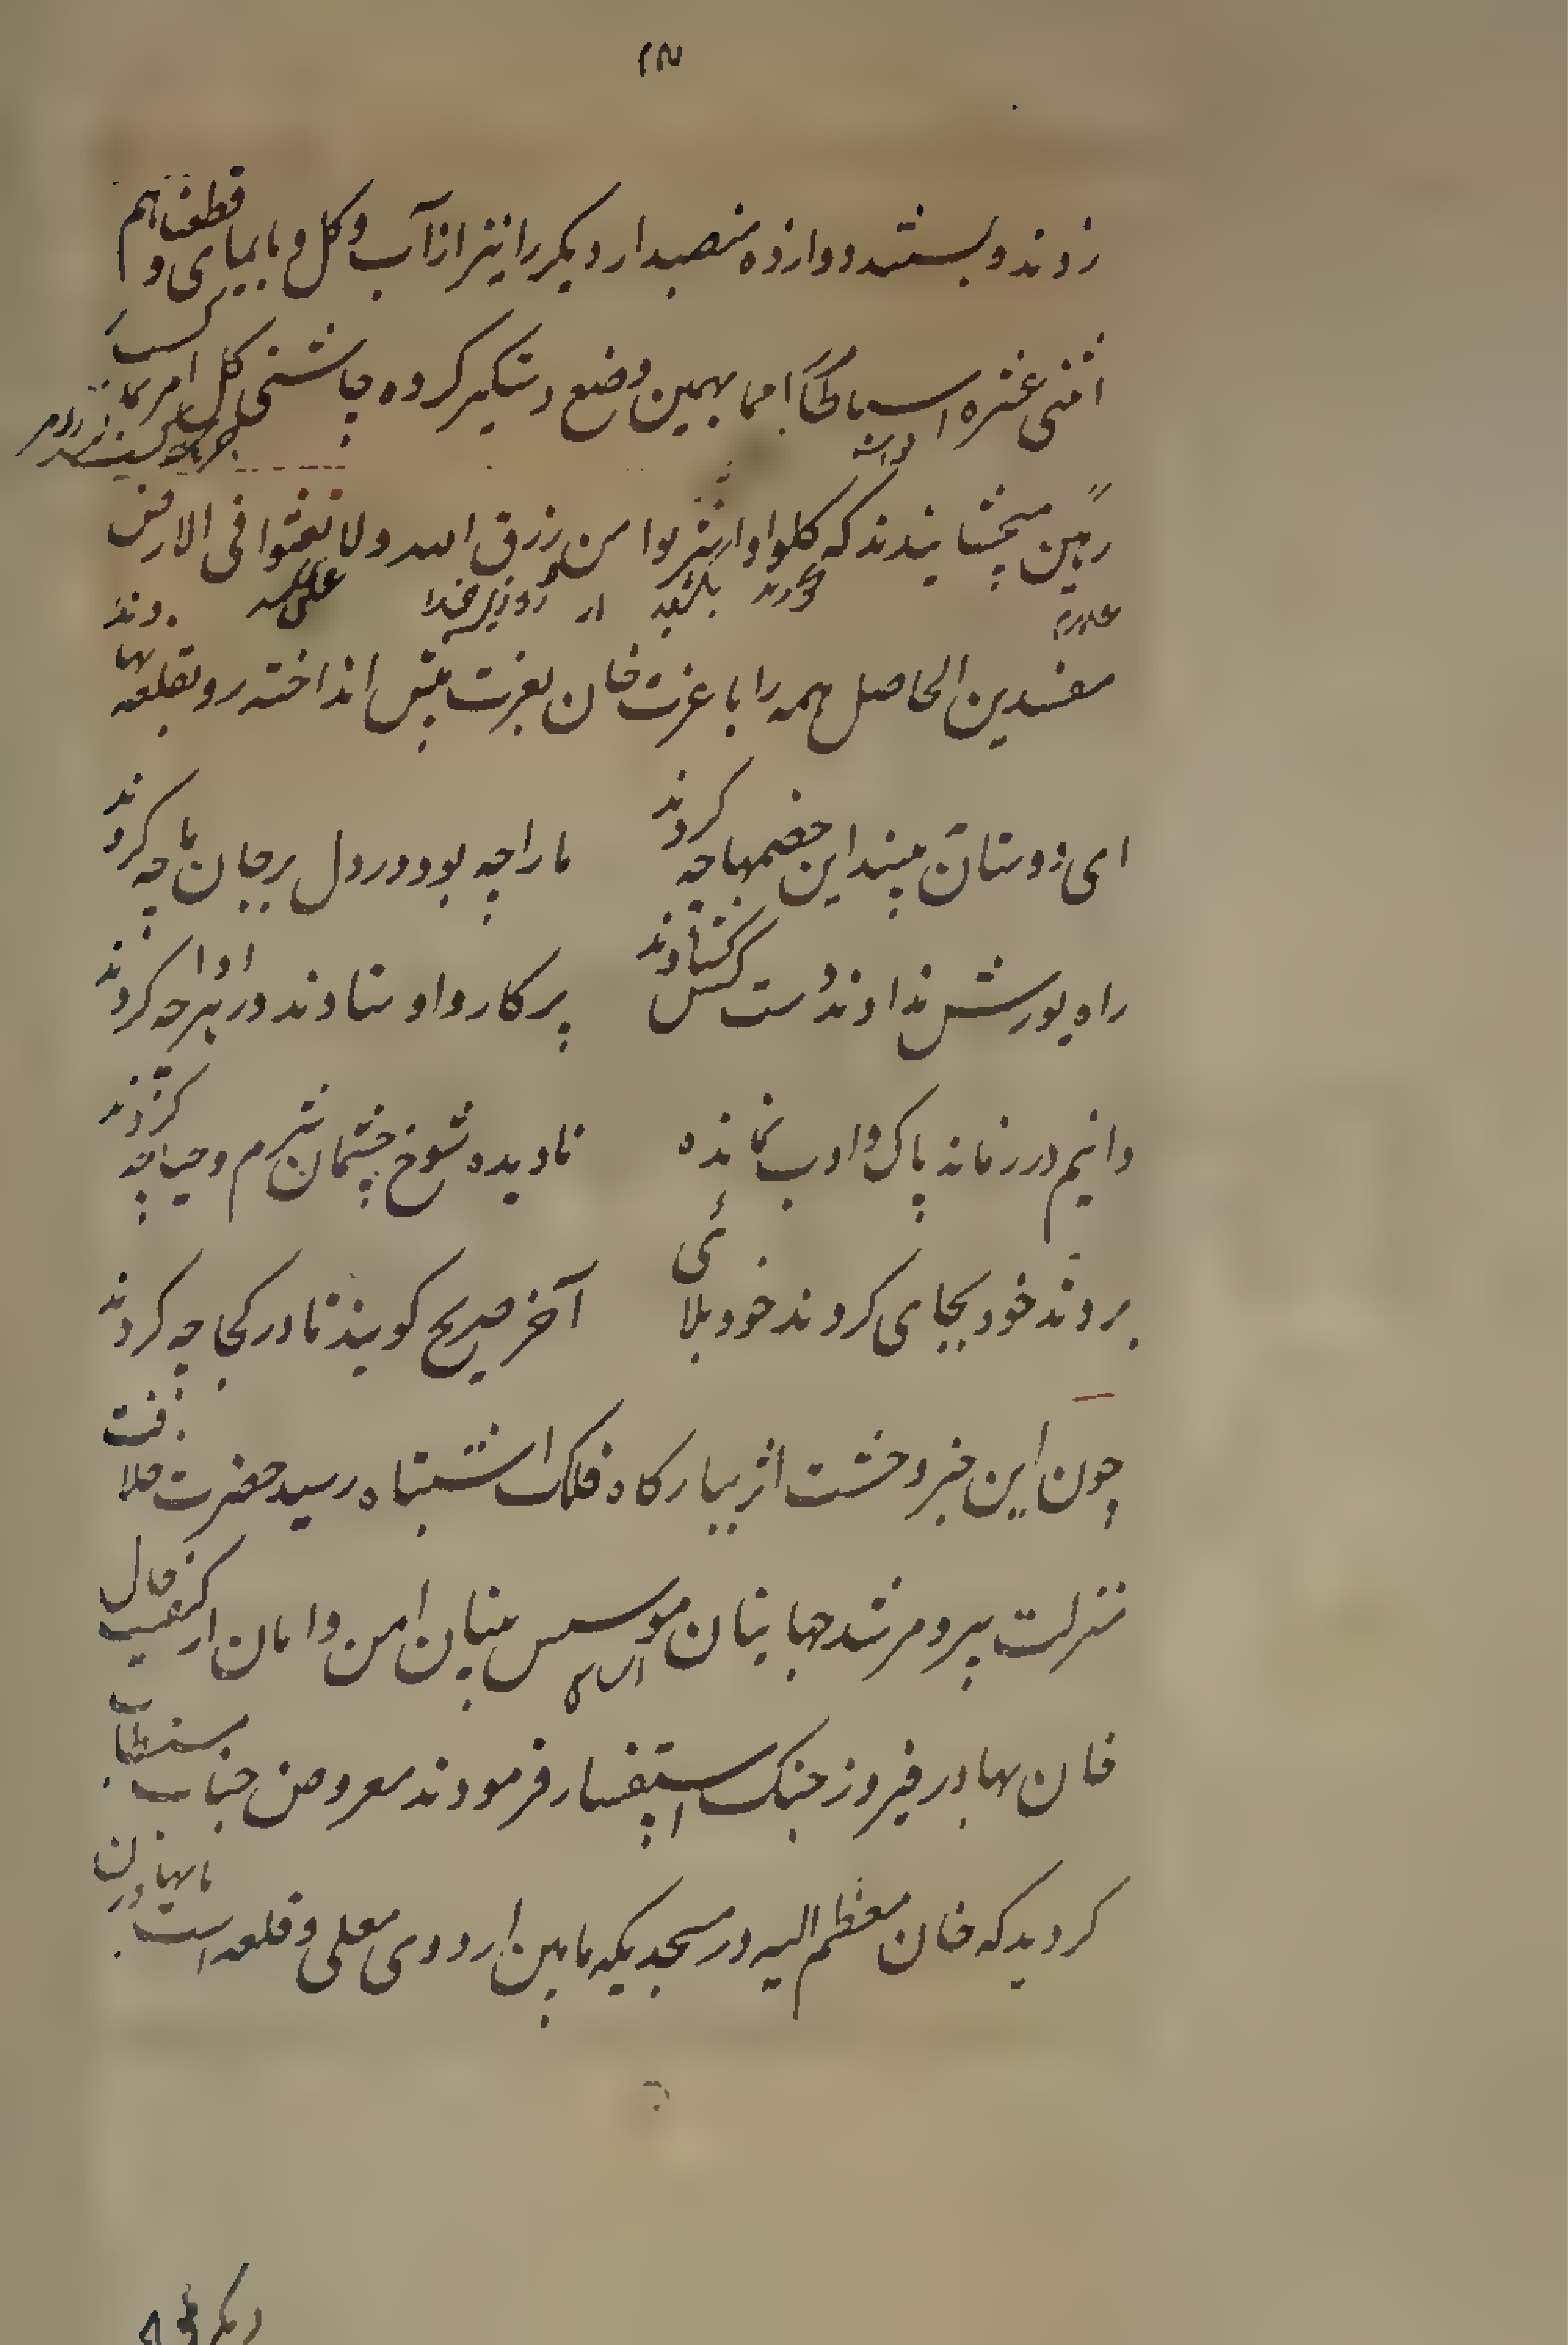 زدند و بستند دوازده منصبدار دیکر را نیز از آب و کل و بابیای و قطعناهم
اثنی عشره اسباطاً امما بهمین وضع دستکیر کرده چاشنی کل امر بما کسب
رهین میچشانیدند که کلوا واشربوا من رزق الله ولا تعثوا فی الارض
بخورند از روزی خدا
مفسدین الحاصل همه را با عزت خان بعزت پیش انداخته رو بقلعه نهادند
ای دوستان ببینید این خصمها چه کردند ما را چه بود در دل بر جان ما چه کردند
راه یورش ندادند دست کس کشادند پر کار و اوستادند در هر ادا چه کردند
دانیم در زمانه پاک و ادب نمانده نادیده شوخ چشمان شرم و حیا چه کردند
بردند خود بجای کردند خود بلائی آخر صریح کویند نادر کجا چه کردند
چون این خبر وحشت اثر ببارکاه فلک اشتباه رسید حضرت خلافت
منزلت پیر و مرشد جهانبانان موسس بنیان امن و امان از کیفیت حال
خان بهادر فیروز جنک استفسار فرمودند معروض جناب مستطاب
کردید که خان معظم الیه در مسجدیکه مابین اردوی معلی و قلعه است با بهادران
دیکر